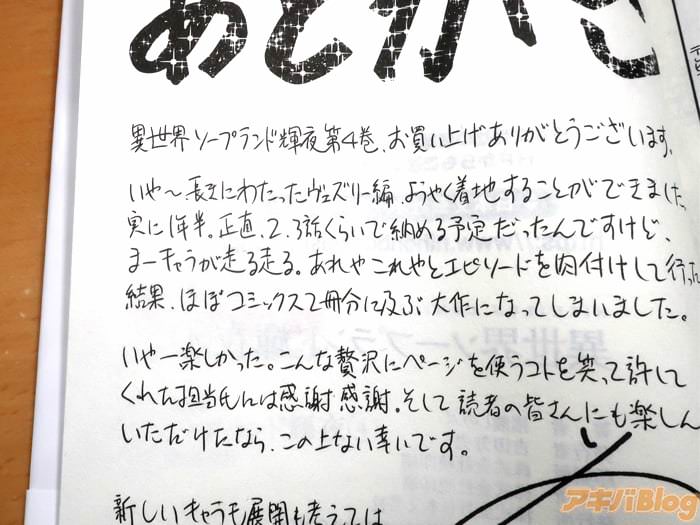 あとがき
異世界ソープランド輝夜第4巻、お買い上げありがとうございます。
いや〜長きにわたったヴェズリー編、ようやく着地することができました。
実に1年半。正直、2、3話くらいで納める予定だったんですけど、
まーキャラが走る走る。あれやこれやとエピソードを肉付けして行った
結果、ほぼコミックス2冊分に及ぶ大作になってしまいました。
いやー楽しかった。こんな贅沢にページを使うコトを笑って許して
くれた担当氏には感謝感謝。そして読者の皆さんにも楽しん
いただけたなら、この上ない幸いです。
新しいキャラも展開も考えては
アキバBlog